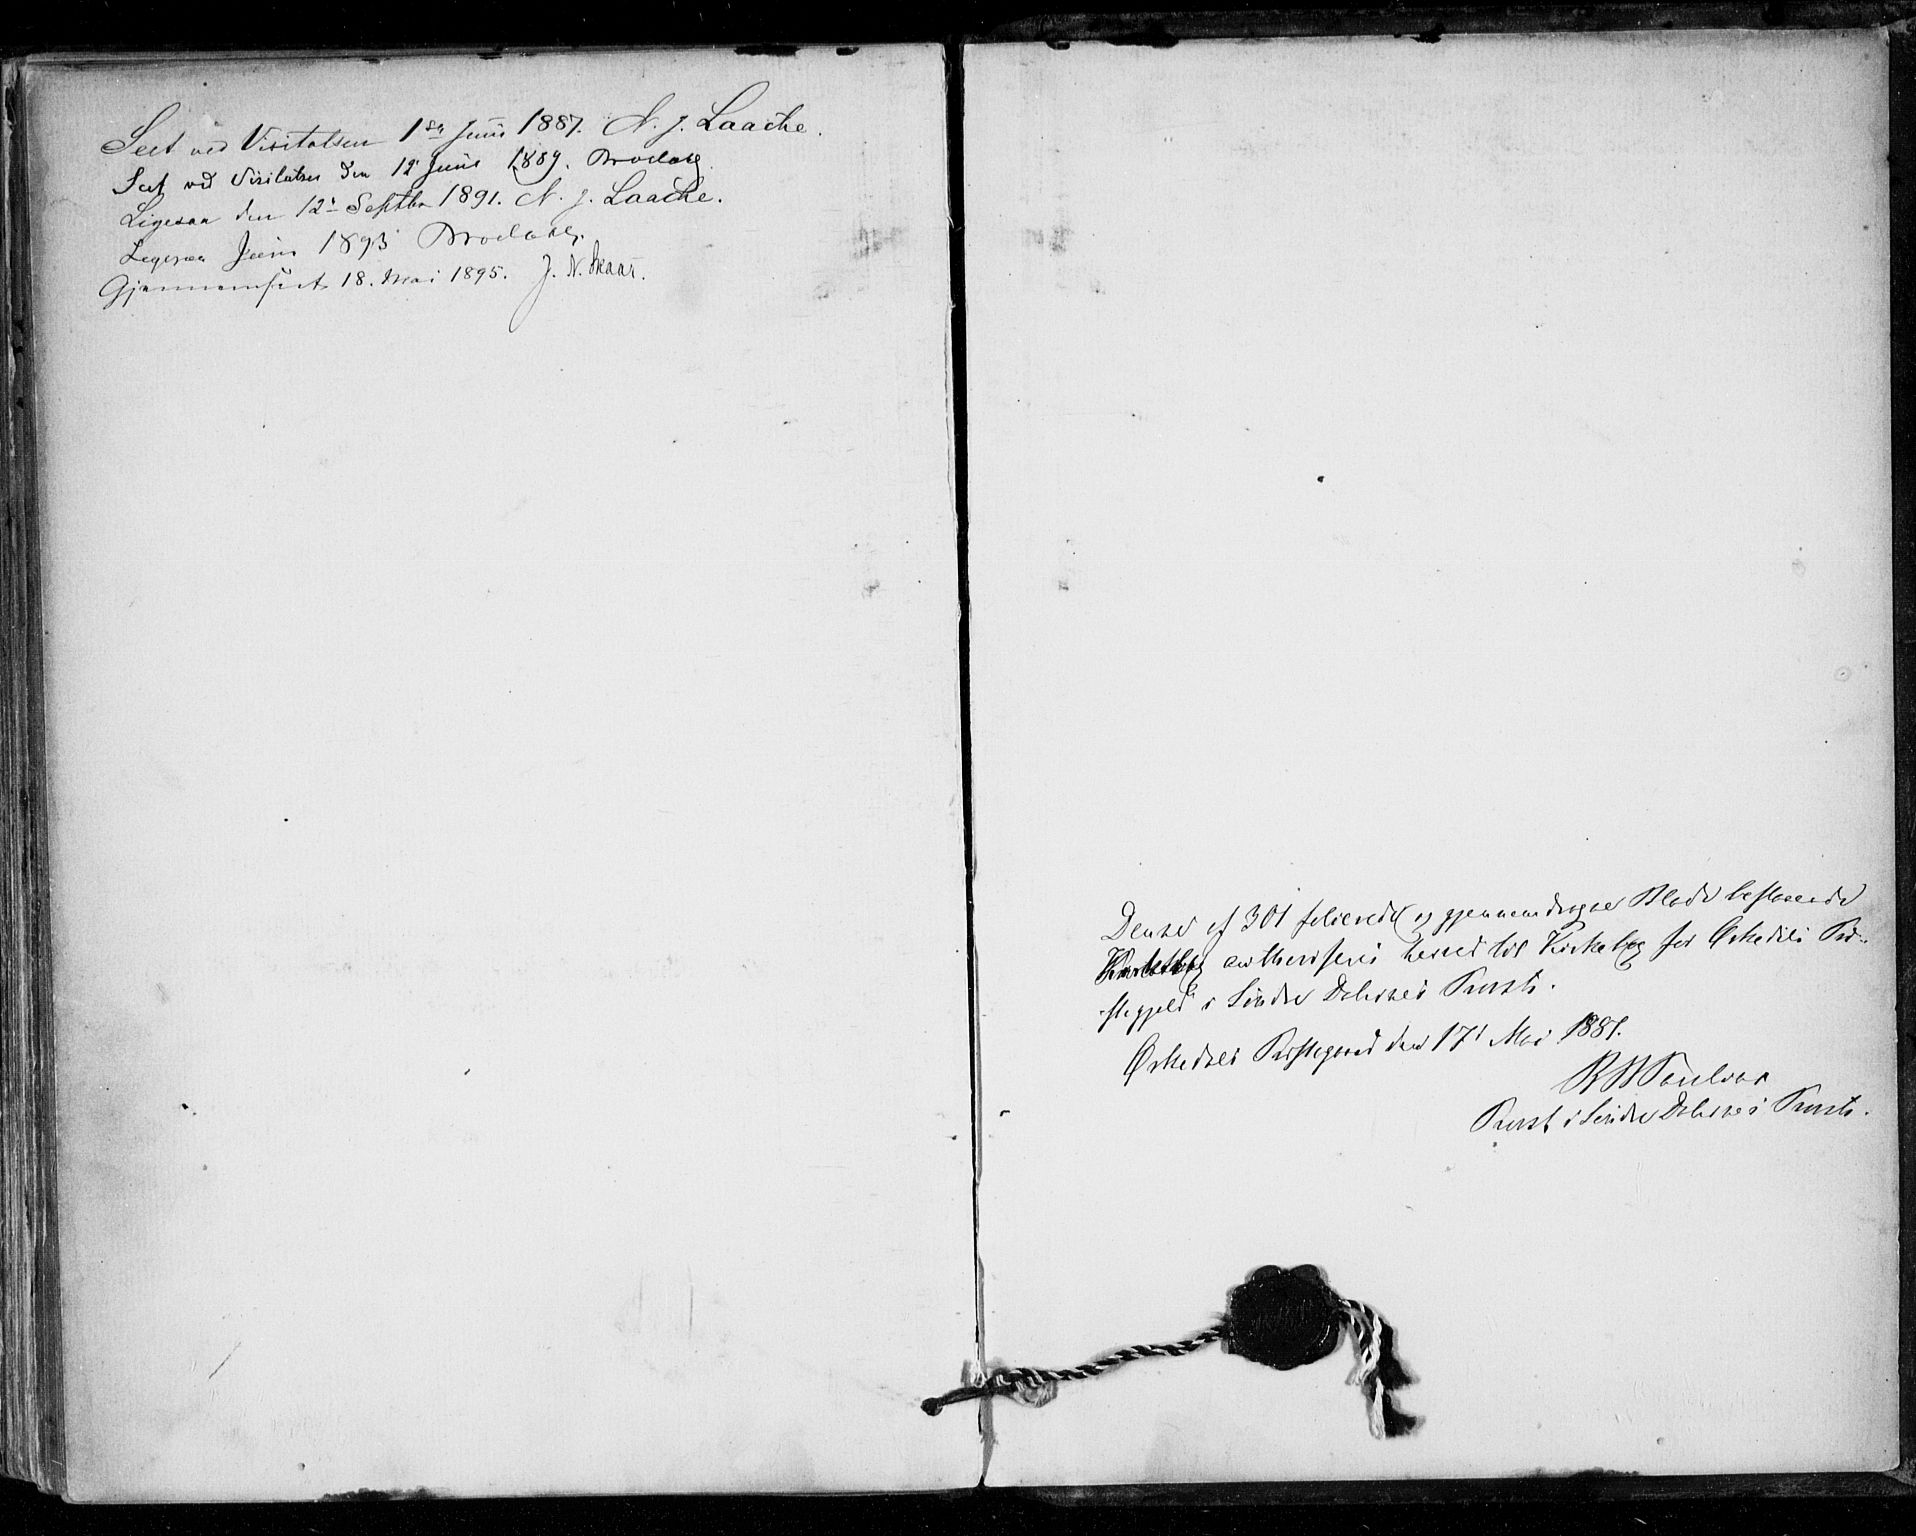 Seet ved Visitatsen 1ste Juni 1887. N. J. Laache.
Seet ved Visitatsen den 12' Juni 1889. Brodahl
Ligesaa den 12' Septbr 1891. N. J. Laache.
Ligesaa Juni 1893 Brodahl.
Gjennemseet 18. Mai 1895. J. N. Skaar.
Denne af 301 folierede og gjennemdragne Blade bestaaende
authoriseres herved til Kirkebog for Ørkedals Præ-
stegjeld i Søndre Dalernes Provsti.
Ørkedals Præstegaard den 17' Mai 1881.
Poulson
Provst i Søndre Dalernes Provsti.